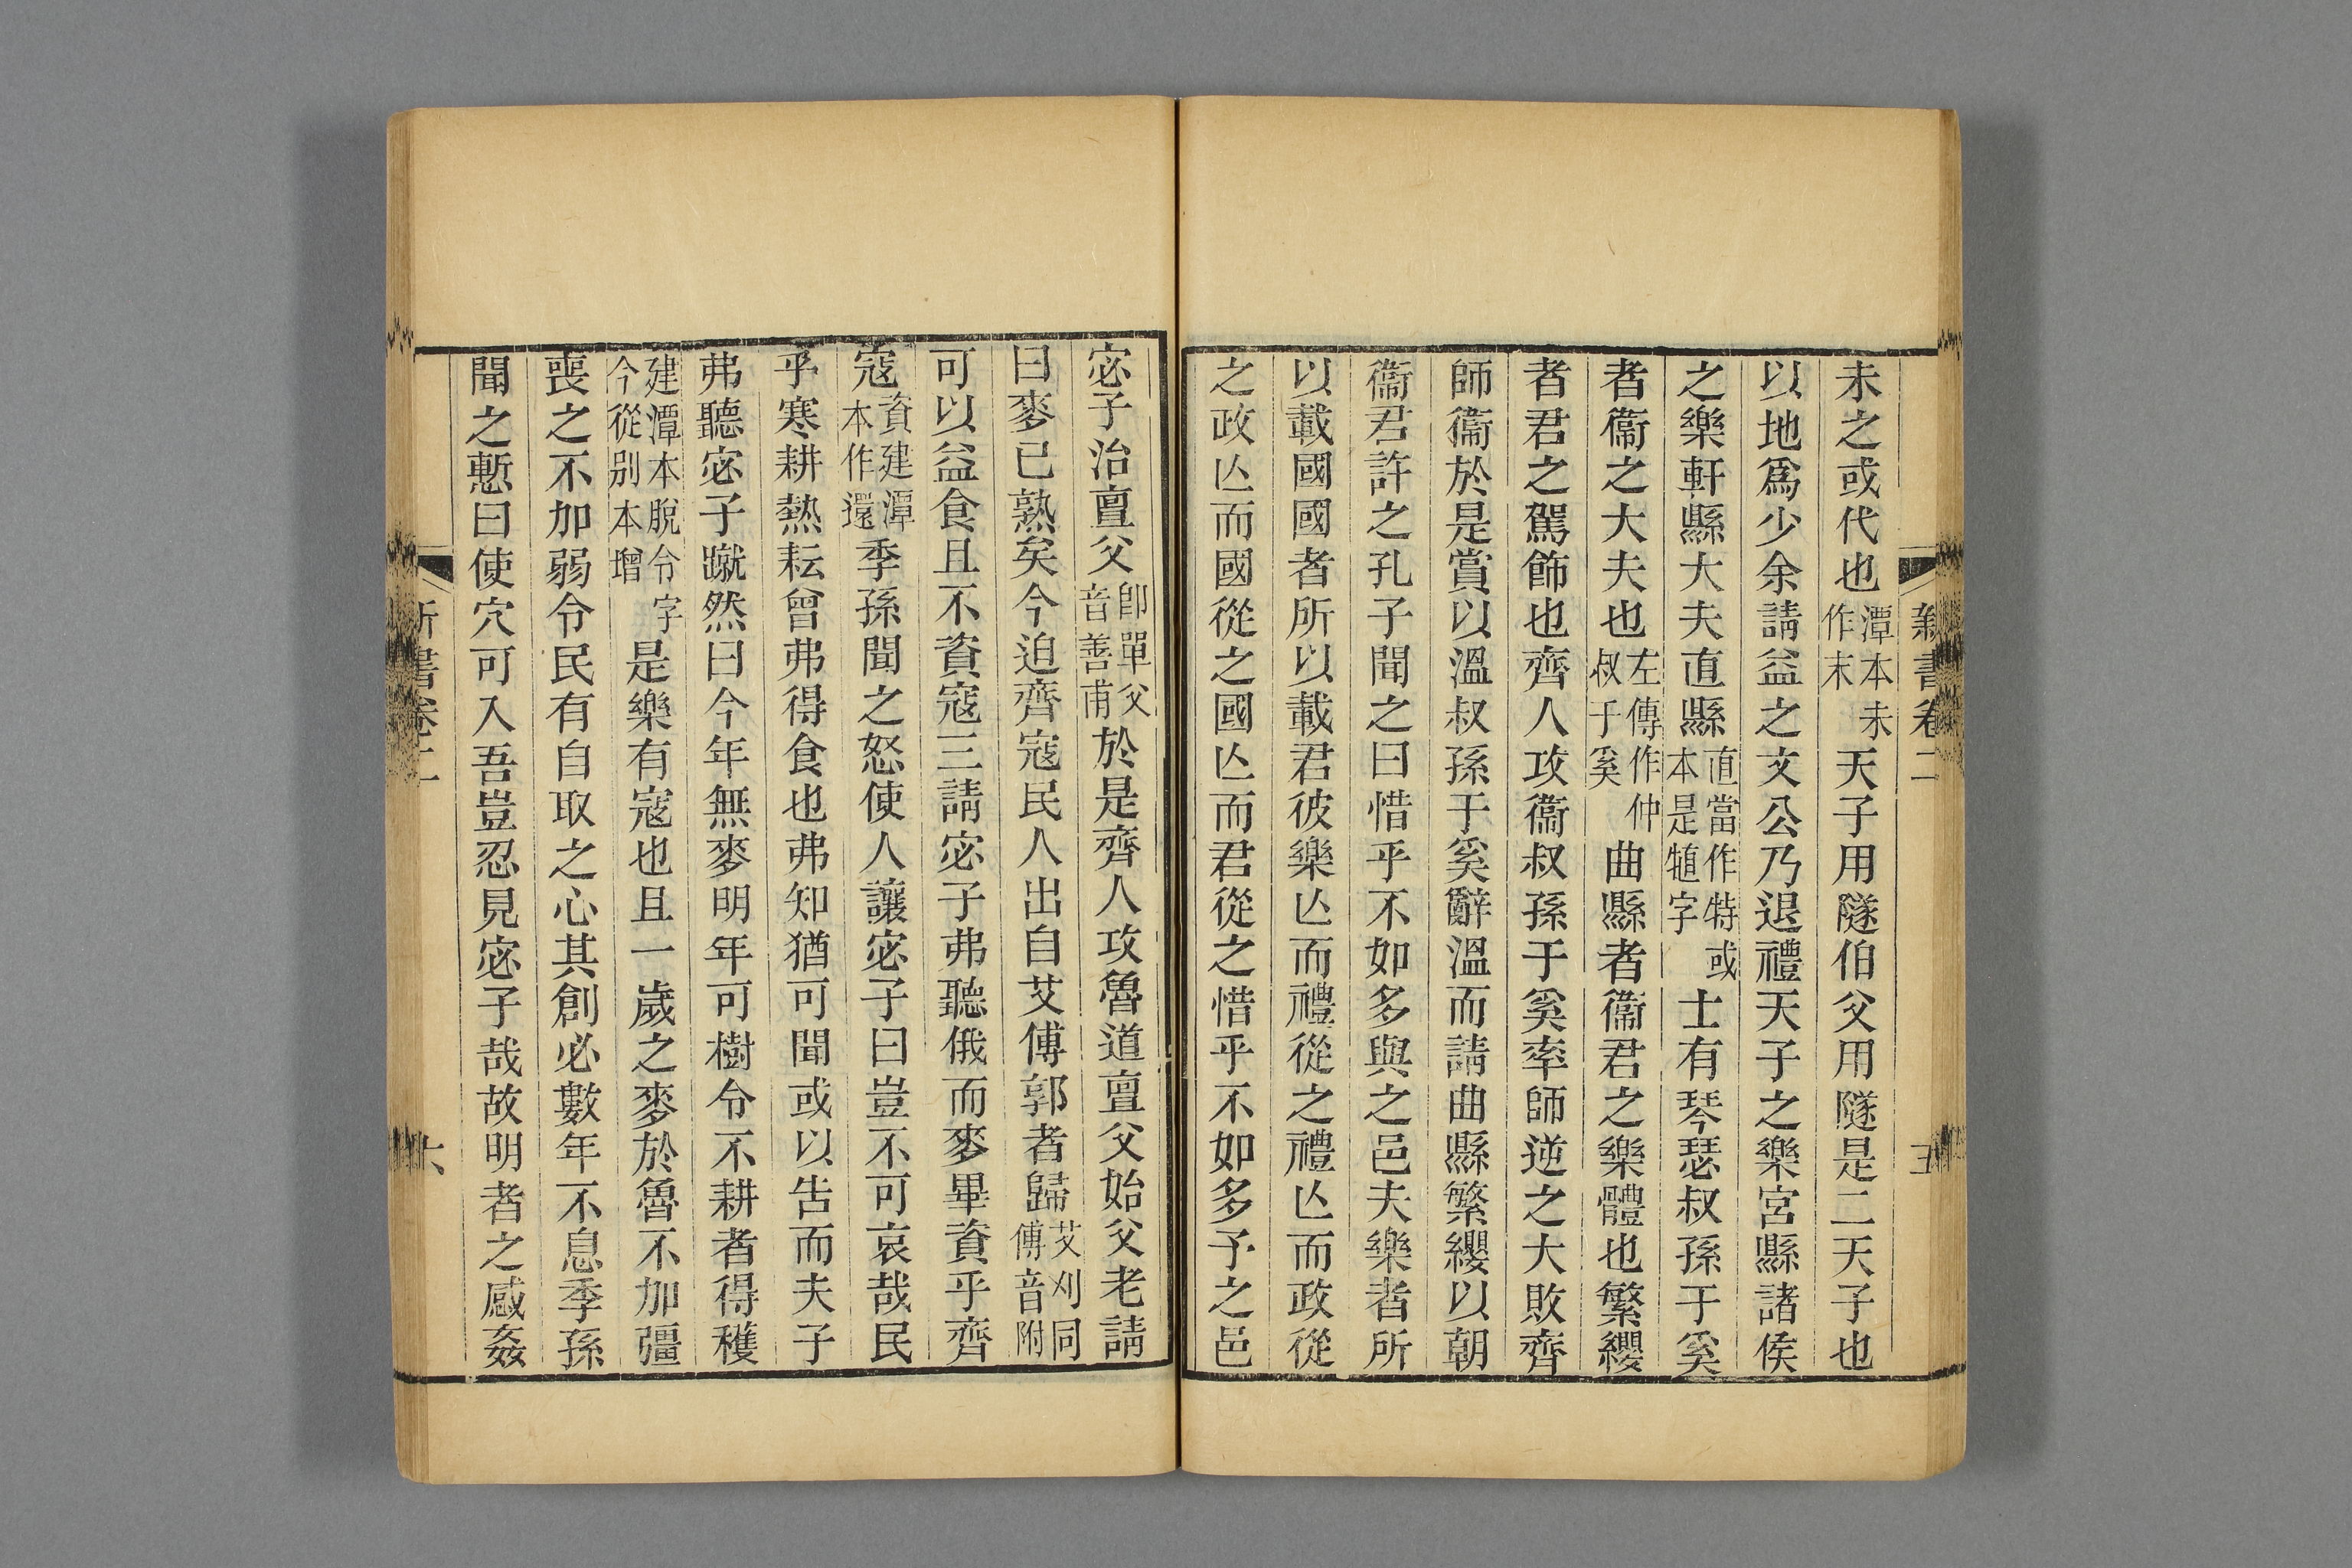 新書卷二
五
未之或代也潭本未作末天子用隧伯父用隧是二天子也
以地爲少余請益之文公乃退禮天子之樂宮縣諸侯
之樂軒縣大夫直縣直當作特或本是犆字士有琴瑟叔孫于奚
者衞之大夫也左傳作仲叔于奚曲縣者衞君之樂體也繁纓
者君之駕飾也齊人攻衞叔孫于奚率師逆之大敗齊
師衞於是賞以溫叔孫于奚辭溫而請曲縣繁纓以朝
衞君許之孔子聞之曰惜乎不如多與之邑夫樂者所
以載國國者所以載君彼樂亾而禮從之禮亾而政從
之政亾而國從之國亾而君從之惜乎不如多予之邑
宓子治亶父卽單父音善甫於是齊人攻魯道亶父始父老請
曰麥已熟矣今迫齊寇民人出自艾傅郭者歸艾刈同傅音附
可以益食且不資寇三請宓子弗聽俄而麥畢資乎齊
寇資建潭本作還季孫聞之怒使人讓宓子曰豈不可哀哉民
乎寒耕熱耘曾弗得食也弗知猶可聞或以告而夫子
弗聽宓子蹴然曰今年無麥明年可樹令不耕者得穫
建潭本脫令字今從别本增是樂有寇也且一歲之麥於魯不加彊
喪之不加弱令民有自取之心其創必數年不息季孫
聞之慙曰使穴可入吾豈忍見宓子哉故明者之感姦
新書卷二
六